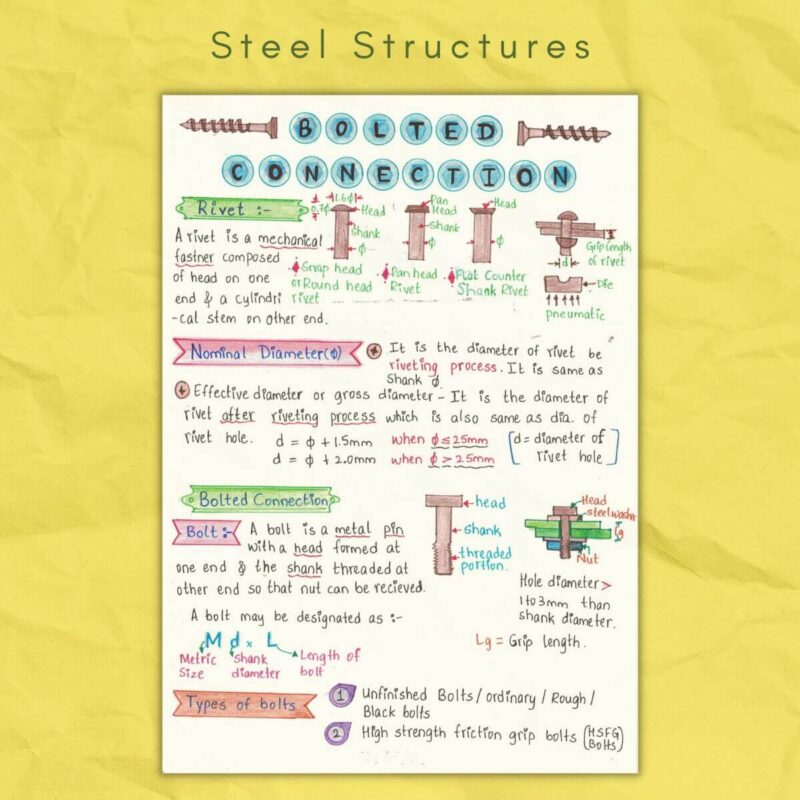 Steel Structures
BOLTED
CONNECTION
Rivet :-
1.6ϕ
0.7ϕ
Head
Shank
ϕ
Snap head
or Round head
rivet
Pan
Head
shank
ϕ
Pan head
Rivet
Head
ϕ
Flat Counter
Shank Rivet
Grip length
of rivet
d
Die
pneumatic
A rivet is a mechanical
fastner composed
of head on one
end & a cylindri
-cal stem on other end.
Nominal Diameter(ϕ)
It is the diameter of rivet be
riveting process. It is same as
Shank ϕ.
Effective diameter or gross diameter - It is the diameter of
rivet after riveting process which is also same as dia. of
rivet hole.
d = ϕ + 1.5mm when ϕ ≤ 25mm
d = ϕ + 2.0mm when ϕ > 25mm
[d = diameter of
rivet hole]
Bolted Connection
Bolt :-
A bolt is a metal pin
with a head formed at
one end & the shank threaded at
other end so that nut can be recieved.
head
shank
threaded
portion.
Head
steel washr
lg
Nut
Hole diameter >
1 to 3mm than
shank diameter.
Lg = Grip length.
A bolt may be designated as :-
M d x L
Metric
Size
Shank
diameter
Length of
bolt
Types of bolts
1 Unfinished Bolts/ordinary/Rough/
Black bolts
2. High strength friction grip bolts (HSFG
Bolts)